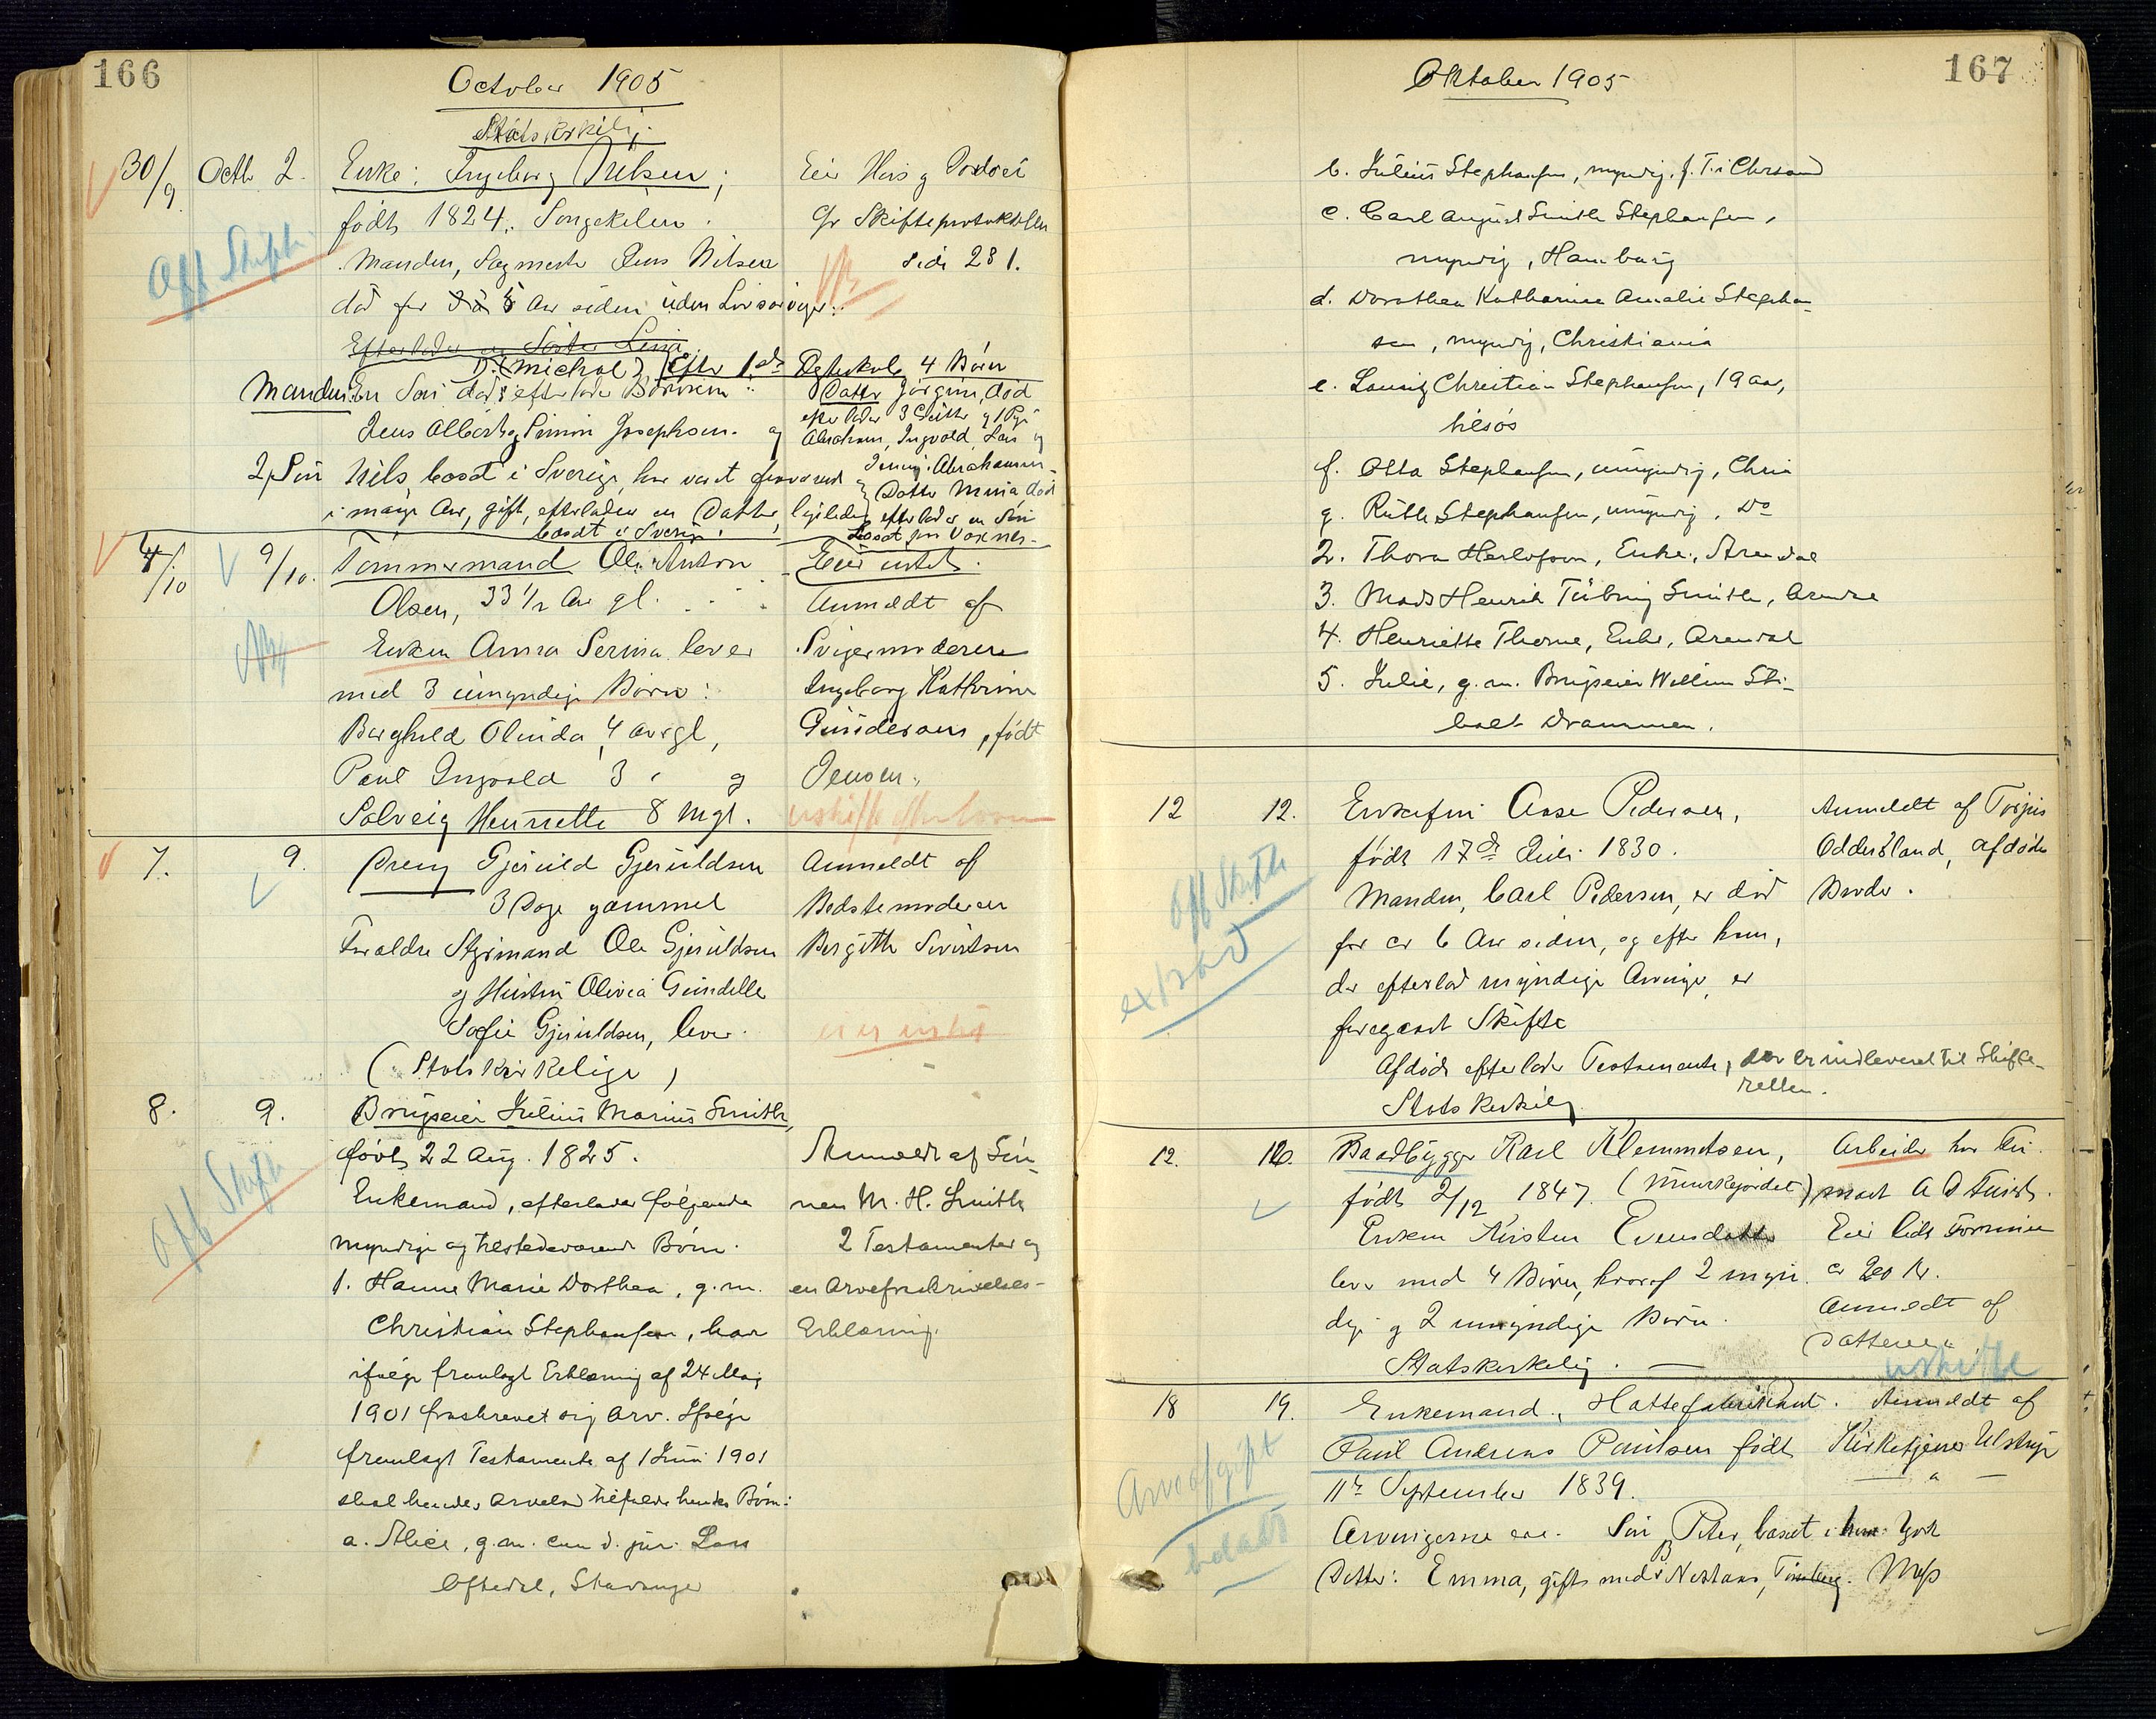 166
October 1905
Statskirkelig.
30/9 Octb 2. Enke: Ingeborg Nielsen;
født 1824. Songekilen.
Manden, Sagmester Jens Nilsen
død for 5 Aar siden uden Livsarvinger.
Eier Hus og
Cfr Skifteprotokollen
side 281.
Off Skifte
Efterlader en Søster
efter 1ste Ægteskab 4 Børn
Manden: En Søn død: efterlader Børnene:
Jens Albert og Simon Josephsen. og
2, Søn Nils, bosat i Sverige, har vært fraværende
i mange Aar, gift, efterlader en Datter,
bosat i Sverige.
Datter Jørgine, død
efterlader 3 Gutter og 1 Pige
Abraham, Ingvald, Lars og
Jenny Abrahamsen
Datter Maria, død
efterlader en Søn
4/10 9/10. Tømmermand Ole Anton
Olsen, 33 1/2 Aar gl.
Enken Anna Serina lever
med 3 umyndige Børn:
Borghild Olinda, 4 aar gl,
Paul Ingvald 3 " og
Solveig Henriette 8 Mgl.
Eier intet.
Anmeldt af
Svigermoderen
Ingeborg Kathrine
Gundersen, født
Jensen.
uskifte efterladt
7. 9. Dreng Gjeruld Gjeruldsen
3 Dage gammel
Forældre Styrmand Ole Gjeruldsen
og Hustru Olivia Gundelle
Sofie Gjeruldsen, lever.
(Statskirkelige)
Anmeldt af
Bedstemoderen
Bergitte Sivertsen
eier intet
8. 9. Brugseier Julius Marius Smith,
født 22 Aug. 1825.
Enkemand, efterlader følgende
myndige og tilstedeværende Børn.
1. Hanne Marie Dorthea, g. m.
Christian Stephansen, har
ifølge fremlagt Erklæring af 24 Maj
1901 fraskrevet sig Arv. Ifølge
fremlagt Testamente af 1 Juni 1901
skal hendes Arvelod tilfalde hendes Børn:
a. Alice, g. m. cand. jur. Lars
Oftedal, Stavanger
Off Skifte
Anmeldt af Søn-
nen M. H. Smith
2 Testamenter og
en Arvefraskrivelses-
Erklæring.
167
Oktober 1905
b. Julius Stephansen, myndig, f. T. i Chrsand
c. Carl August Smith Stephansen,
myndig, Hamburg
d. Dorothea Katharine Amalie Stephan-
sen, myndig, Christiania
e. Lauritz Christian Stephansen, 19 aar,
tilsøs
f. Otto Stephansen, umyndig, Chria
g. Ruth Stephansen, umyndig, Do
2. Thora Herlofson, Enke, Arendal
3. Mads Henrik Tübring Smith, Arendal
4. Henriette Thorne, Enke, Arendal
5. Julie, g. m. Brugseier Willum Sti-
bolt Drammen.
12 12. Enkefru Aase Pedersen,
født 17de Juli 1830.
Manden, Carl Pedersen, er død
for ca 6 Aar siden, og efter ham,
der efterlod myndige Arvinger, er
foregaaet Skifte
Afdøde efterlader Testamente, der er indleveret til Skifte-
retten.
Statskirkelig
Off Skifte
Anmeldt af Torjus
Oddersland, afdødes
Broder.
12. 16. Baadbygger Karl Klemmetsen,
født 2/12 1847. (Munkegjordet)
Enken Kirsten Evensdatter
lever med 4 Børn, hvoraf 2 myn-
dige og 2 umyndige Børn.
Statskirkelig.
Arbeider hos
Eier lidt Formue
ca 200 Kr.
Anmeldt af
Datteren
uskifte
18 19. Enkemand, Hattefabrikant.
Paul Andreas Paulsen født
11te September 1839.
Arvingerne ere. Søn Peter, bosat i New York
Datter: Emma, gift med Nestaas, Tønsberg.
Anmeldt af
Kirketjener Ulstrup
Arveafgift
betalt